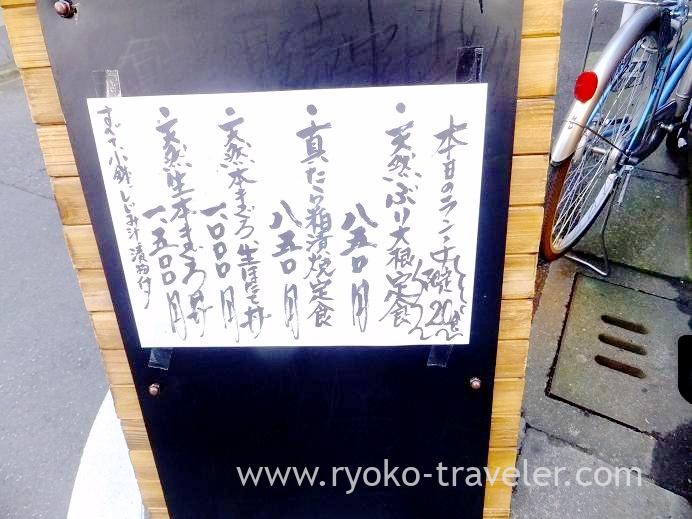 本日のランチ
限定20食
・天然ぶり大根定食
八五〇円
・真たら粕漬焼定食
八五〇円
・天然本まぐろ、生ほたて丼
一、〇〇〇円
・天然生本まぐろ丼
一、五〇〇円
すべて、小鉢、しじみ汁、漬物付
www.ryoko-traveler.com